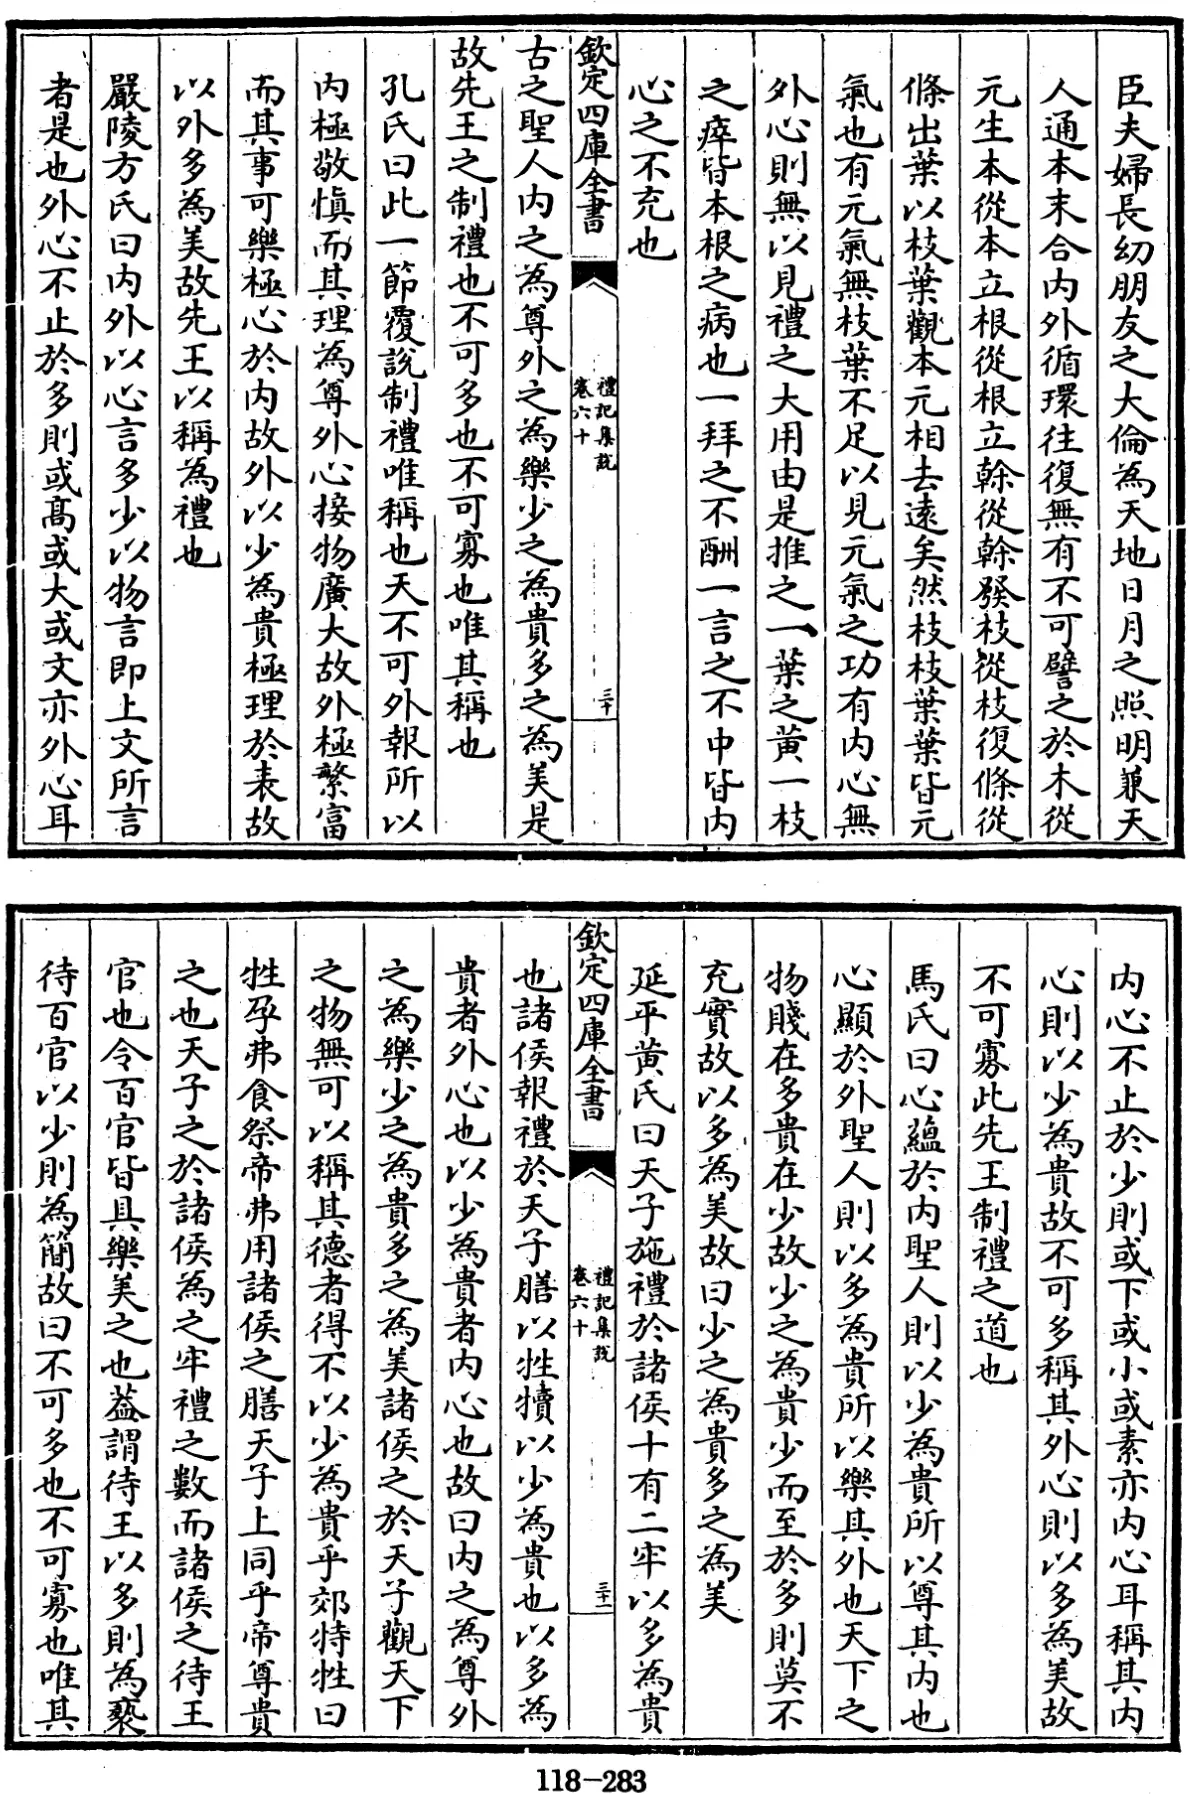 臣夫婦長幼朋友之大倫為天地日月之照明兼天
人通本末合内外循環往復無有不可譬之於木從
元生本從本立根從根立榦從榦發枝從枝復條從
條出葉以枝葉觀本元相去遠矣然枝枝葉葉皆元
氣也有元氣無枝葉不足以見元氣之功有内心無
外心則無以見禮之大用由是推之一葉之黄一枝
之瘁皆本根之病也一拜之不酬一言之不中皆内
心之不充也
欽定四庫全書
禮記集說
卷六十
三十
古之聖人内之為尊外之為樂少之為貴多之為美是
故先王之制禮也不可多也不可寡也唯其稱也
孔氏曰此一節覆說制禮唯稱也天不可外報所以
内極敬慎而其理為尊外心接物廣大故外極繁富
而其事可樂極心於内故外以少為貴極理於表故
以外多為美故先王以稱為禮也
嚴陵方氏曰内外以心言多少以物言即上文所言
者是也外心不止於多則或髙或大或文亦外心耳
内心不止於少則或下或小或素亦内心耳稱其内
心則以少為貴故不可多稱其外心則以多為美故
不可寡此先王制禮之道也
馬氏曰心蘊於内聖人則以少為貴所以尊其内也
心顯於外聖人則以多為貴所以樂其外也天下之
物賤在多貴在少故少之為貴少而至於多則莫不
充實故以多為美故曰少之為貴多之為美
延平黄氏曰天子施禮於諸侯十有二牢以多為貴
欽定四庫全書
禮記集說
卷六十
三十一
也諸侯報禮於天子膳以牲犢以少為貴也以多為
貴者外心也以少為貴者内心也故曰内之為尊外
之為樂少之為貴多之為美諸侯之於天子觀天下
之物無可以稱其德者得不以少為貴乎郊特牲曰
牲孕弗食祭帝弗用諸侯之膳天子上同乎帝尊貴
之也天子之於諸侯為之牢禮之數而諸侯之待王
官也令百官皆具樂美之也葢謂待王以多則為褻
待百官以少則為簡故曰不可多也不可寡也唯其
118-283